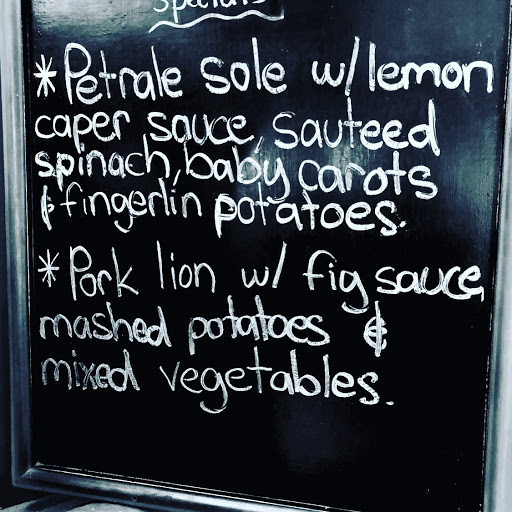 Specials
*Petrale Sole w/lemon
caper sauce, sauteed
spinach, baby carots
& fingerlin potatoes.
*Pork lion w/ fig sauce,
mashed potatoes &
mixed vegetables.